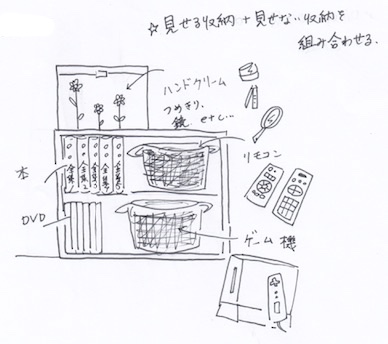 ☆見せる収納+見せない収納を
組み合わせる。
ハンドクリーム
つめきり、
鏡 etc...
リモコン
本
全集1
全集2
全集3
全集4
全集5
DVD
ゲーム機